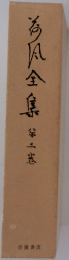 荷風全集
第三巻
岩波書店